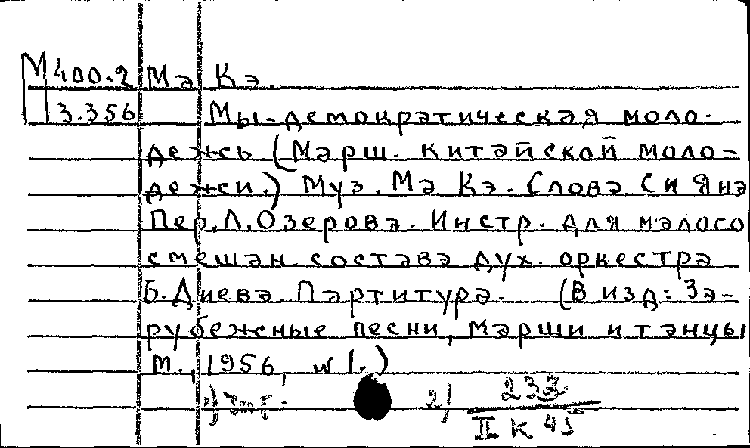 М400.2 Мэ Кэ.
3.356 Мы-демократическая моло-
дежь (Марш. китайской моло-
дежи.) Муз. Мэ Кэ. Слова Си Янэ
Пер. Л. Озерова. Инстр. для малого
смешан. состава дух. оркестра
Б. Диева. Партитура. (В изд: За-
рубежные песни, марши и танцы
М., 1956, №1.)
2) 233
II К 45